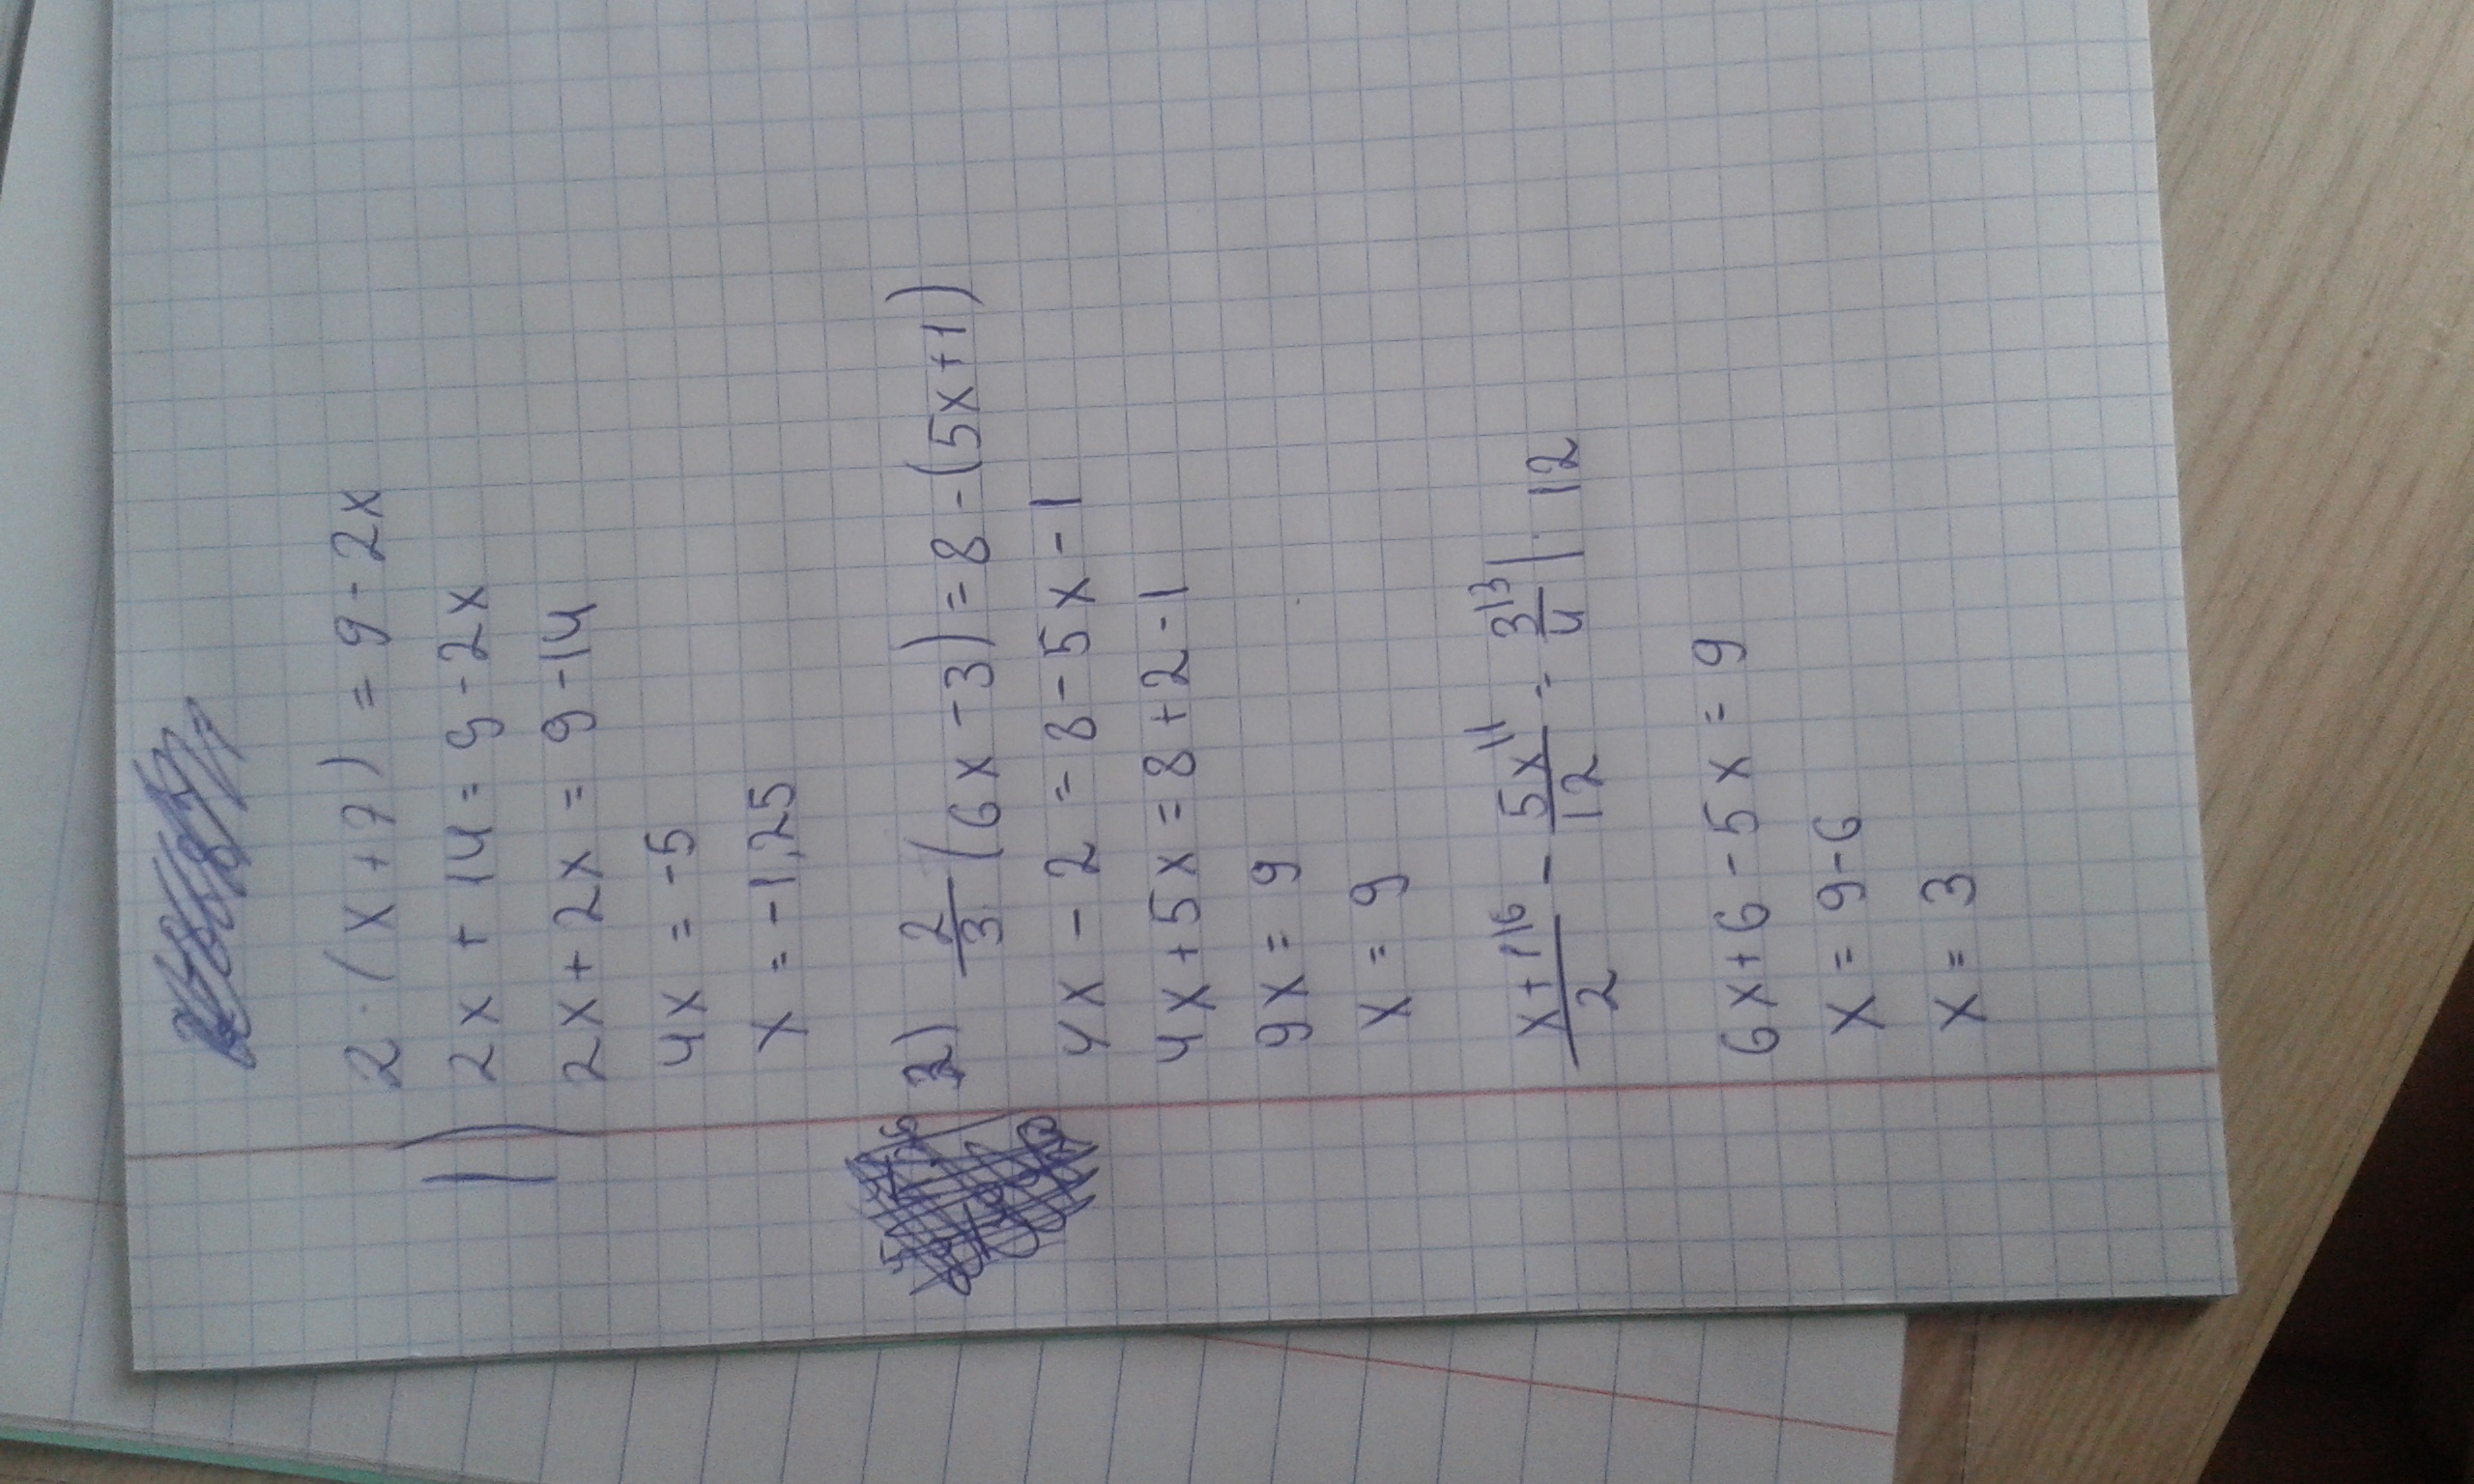 1) 2·(x+7) = 9-2x
2x + 14 = 9-2x
2x+2x = 9-14
4x = -5
x = -1,25
2) 2/3 (6x-3) = 8-(5x+1)
4x-2 = 8-5x-1
4x+5x = 8+2-1
9x = 9
x = 9
x+1|6/2 - 5x|1/12 = 3|3/4 | · 12
6x+6-5x = 9
x = 9-6
x = 3